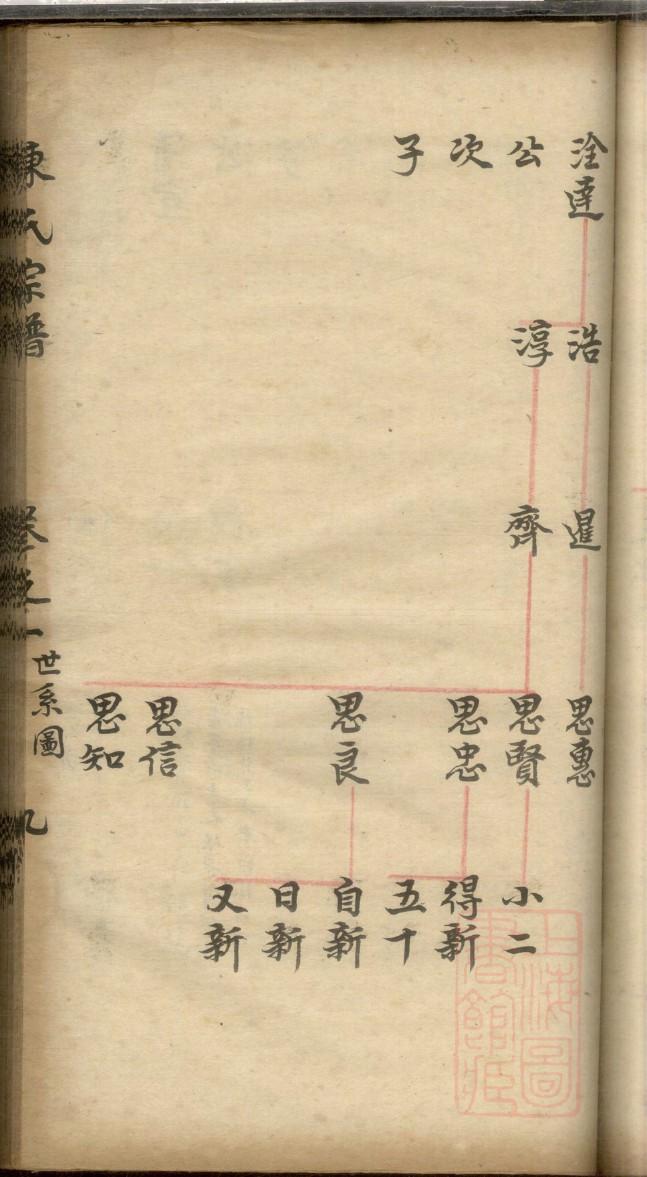 淦達
公
次
子
浩
淳
暹
齊
思惠
思賢
思忠
思良
思信
思知
小二
得新
五十
自新
日新
又新
陳氏宗譜
卷之一
世系圖
九
上海圖書館藏